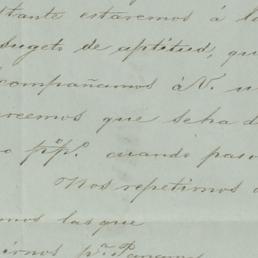 stante estaremos á la
sugeto de aptitud, qu
compañamos á V. u
creemos que se ha d
o pº pº. cuando pas
Nos repetimos
mos las que